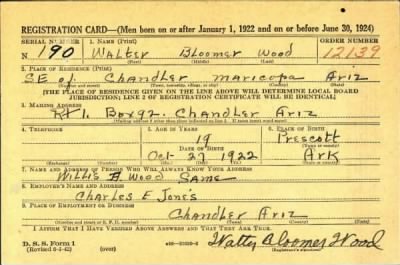 REGISTRATION CARD—(Men born on or after January 1, 1922 and on or before June 30, 1924)
SERIAL NUMBER 1. NAME (Print) ORDER NUMBER
N 190 Walter Bloomer Wood 12139
(First) (Middle) (Last)
2. PLACE OF RESIDENCE (Print)
SE of Chandler Maricopa Ariz
(Number and street) (Town, township, village, or city) (County) (State)
[THE PLACE OF RESIDENCE GIVEN ON THE LINE ABOVE WILL DETERMINE LOCAL BOARD
JURISDICTION; LINE 2 OF REGISTRATION CERTIFICATE WILL BE IDENTICAL]
3. MAILING ADDRESS
Rt 1. Box 92. Chandler Ariz
[Mailing address if other than place indicated on line 2. If same insert word same]
4. TELEPHONE 5. AGE IN YEARS 6. PLACE OF BIRTH
19 Prescott
DATE OF BIRTH (Town or county)
Oct 27 1922 Ark
(Exchange) (Number) (Mo.) (Day) (Yr.) (State or country)
7. NAME AND ADDRESS OF PERSON WHO WILL ALWAYS KNOW YOUR ADDRESS
Willis A. Wood Same
8. EMPLOYER'S NAME AND ADDRESS
Charles E Jones
9. PLACE OF EMPLOYMENT OR BUSINESS
Chandler Ariz
(Number and street or R. F. D. number) (Town) (County) (State)
I AFFIRM THAT I HAVE VERIFIED ABOVE ANSWERS AND THAT THEY ARE TRUE.
D. S. S. Form 1
(Revised 6-1-42) (over) Walter Bloomer Wood
(Registrant's signature)